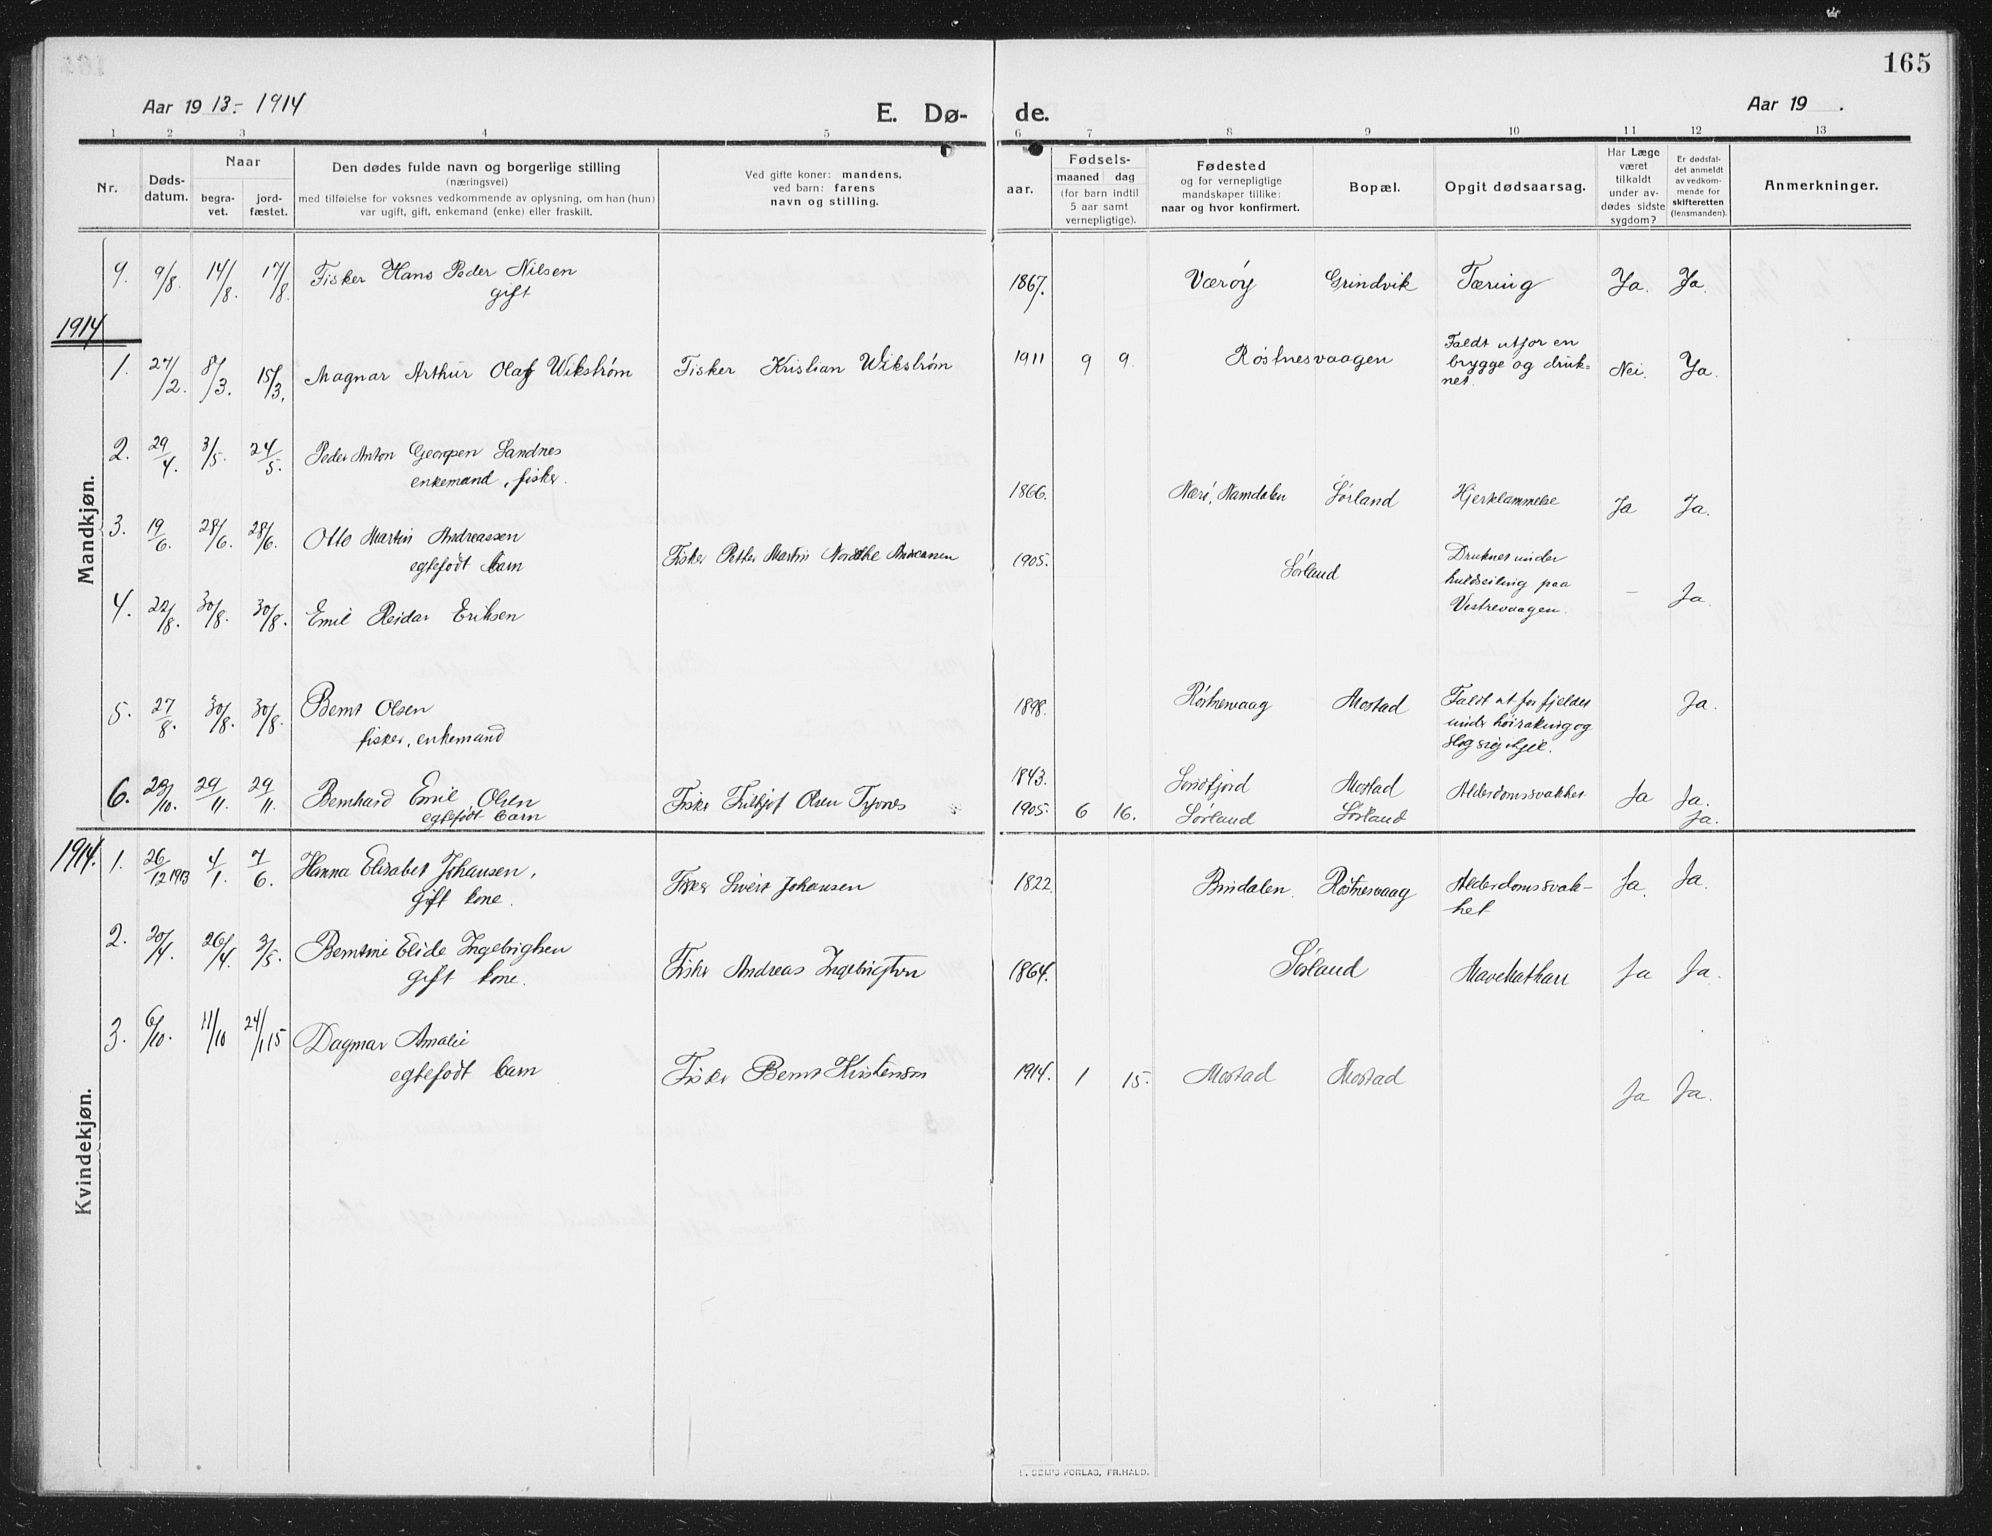 165
Aar 19 13.- 1914
E. Dø-
de.
Aar 19 .
1 2 3 4 5 6 7 8 9 10 11 12 13
Nr.
Døds-
datum.
Naar
begra-
vet.
jord-
fæstet.
Den dødes fulde navn og borgerlige stilling
(næringsvei)
med tilføielse for voksnes vedkommende av oplysning, om han (hun)
var ugift, gift, enkemand (enke) eller fraskilt.
Ved gifte koner: mandens,
ved barn: farens
navn og stilling.
aar.
Fødsels-
maaned dag
(for barn indtil
5 aar samt
vernepligtige).
Fødested
og for vernepligtige
mandskaper tillike:
naar og hvor konfirmert.
Bopæl.
Opgit dødsaarsag.
Har Læge
været
tilkaldt
under av-
dødes sidste
sygdom?
Er dødsfal-
det anmeldt
av vedkom-
mende for
skifteretten
(lensmanden).
Anmerkninger.
Mandkjøn.
9. 9/8. 14/8. 17/8. Fisker Hans Peder Nilsen 1867. Værøy Grindvik Tæring Ja. Ja.
gift
1914
1. 27/2. 8/3. 15/3. Magnar Arthur Olaf Wikstrøm Fisker Kristian Wikstrøm 1911 9 9. Røstnesvaagen Faldt utfor en
brygge og druk=
net. Nei. Ja.
2. 29/4. 3/5. 24/5. Peder Anton Georgsen Sandnes
enkemand, fisker. 1866. Nærö, Namdalen Sørland Hjerklammelse Ja Ja.
3. 19/6. 28/6. 28/6. Otto Martin Andreassen
egtefødt barn Fisker Petter Martin 1905. Sørland Druknet under
paa
Vestrevaagen. - Ja.
4. 22/8. 30/8. 30/8. Emil Reidar Eriksen
1898. Røstnesvaag Mostad Faldt ut for fjeldet
under og
slog sig ihjel. Ja.
5. 27/8. 30/8. 30/8. Bernt Olsen
fisker, enkemand
1843. Sondfjord Mostad Alderdomssvakhet Ja Ja.
6. 29/10. 29/11. 29/11. Bernhard Emil Olsen
egtefødt barn Fisker Olsen 1905. 6 16. Sørland Sørland Ja.
Kvindekjøn.
1914. 1. 26/12 1913 4/1. 7/6. Hanna Elisabet Johansen,
gift kone. Fisker Sivert Johansen 1822. Bindalen. Røstnesvaag Alderdomssvak-
het Ja. Ja.
2. 20/4. 26/4. 3/5. Berntine Elide Ingebrigtsen
gift kone. Fisker Andreas Ingebrigtsen 1864. Sørland Mavekatharr Ja Ja.
3. 6/10. 11/10 24/1 15 Dagmar Amalie
egtefødt barn Fisker Bernt Kristensen 1914. 1 15. Mostad Mostad Ja Ja.
FORLAG, FR.HALD.